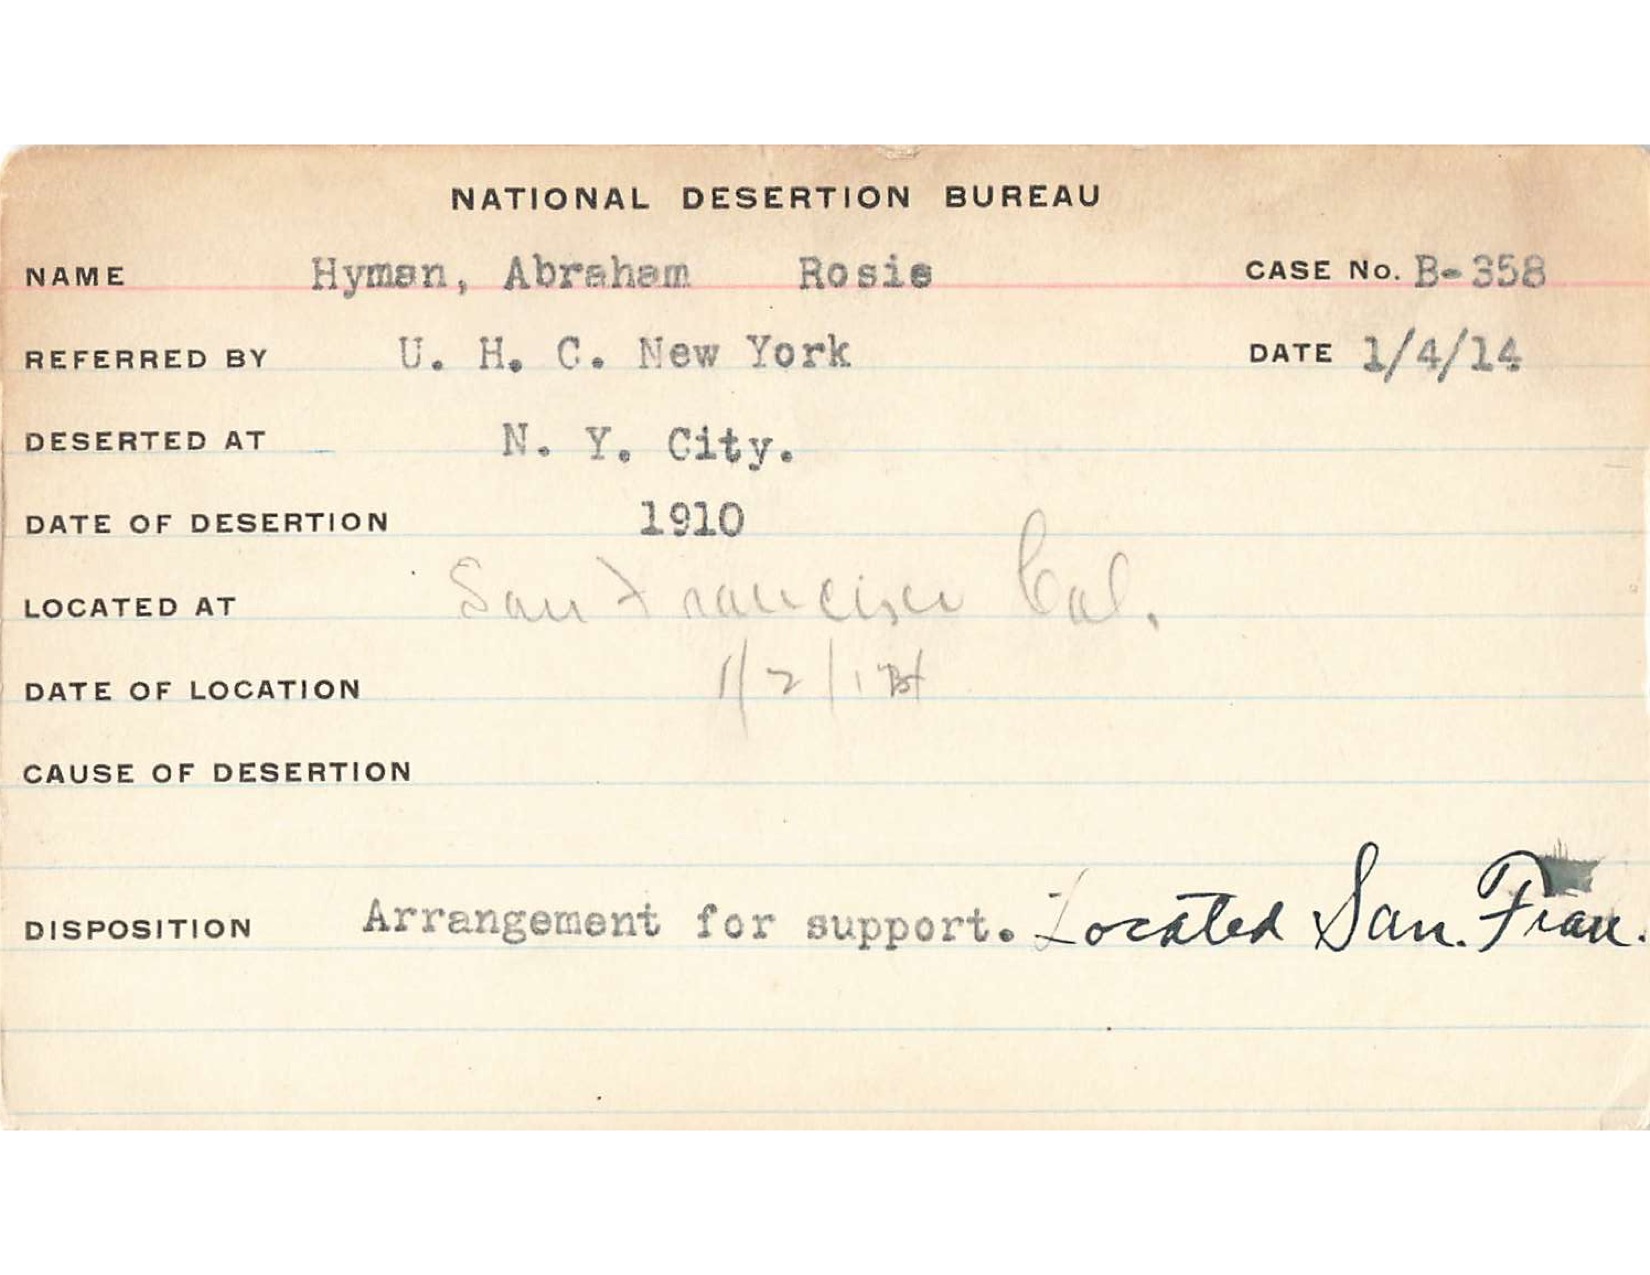 NATIONAL DESERTION BUREAU
NAME Hyman, Abraham Rosie CASE No. B-358
REFERRED BY U. H. C. New York DATE 1/4/14
DESERTED AT N. Y. City.
DATE OF DESERTION 1910
LOCATED AT San Francisco Cal.
DATE OF LOCATION
CAUSE OF DESERTION
DISPOSITION Arrangement for support. Located San. Fran.